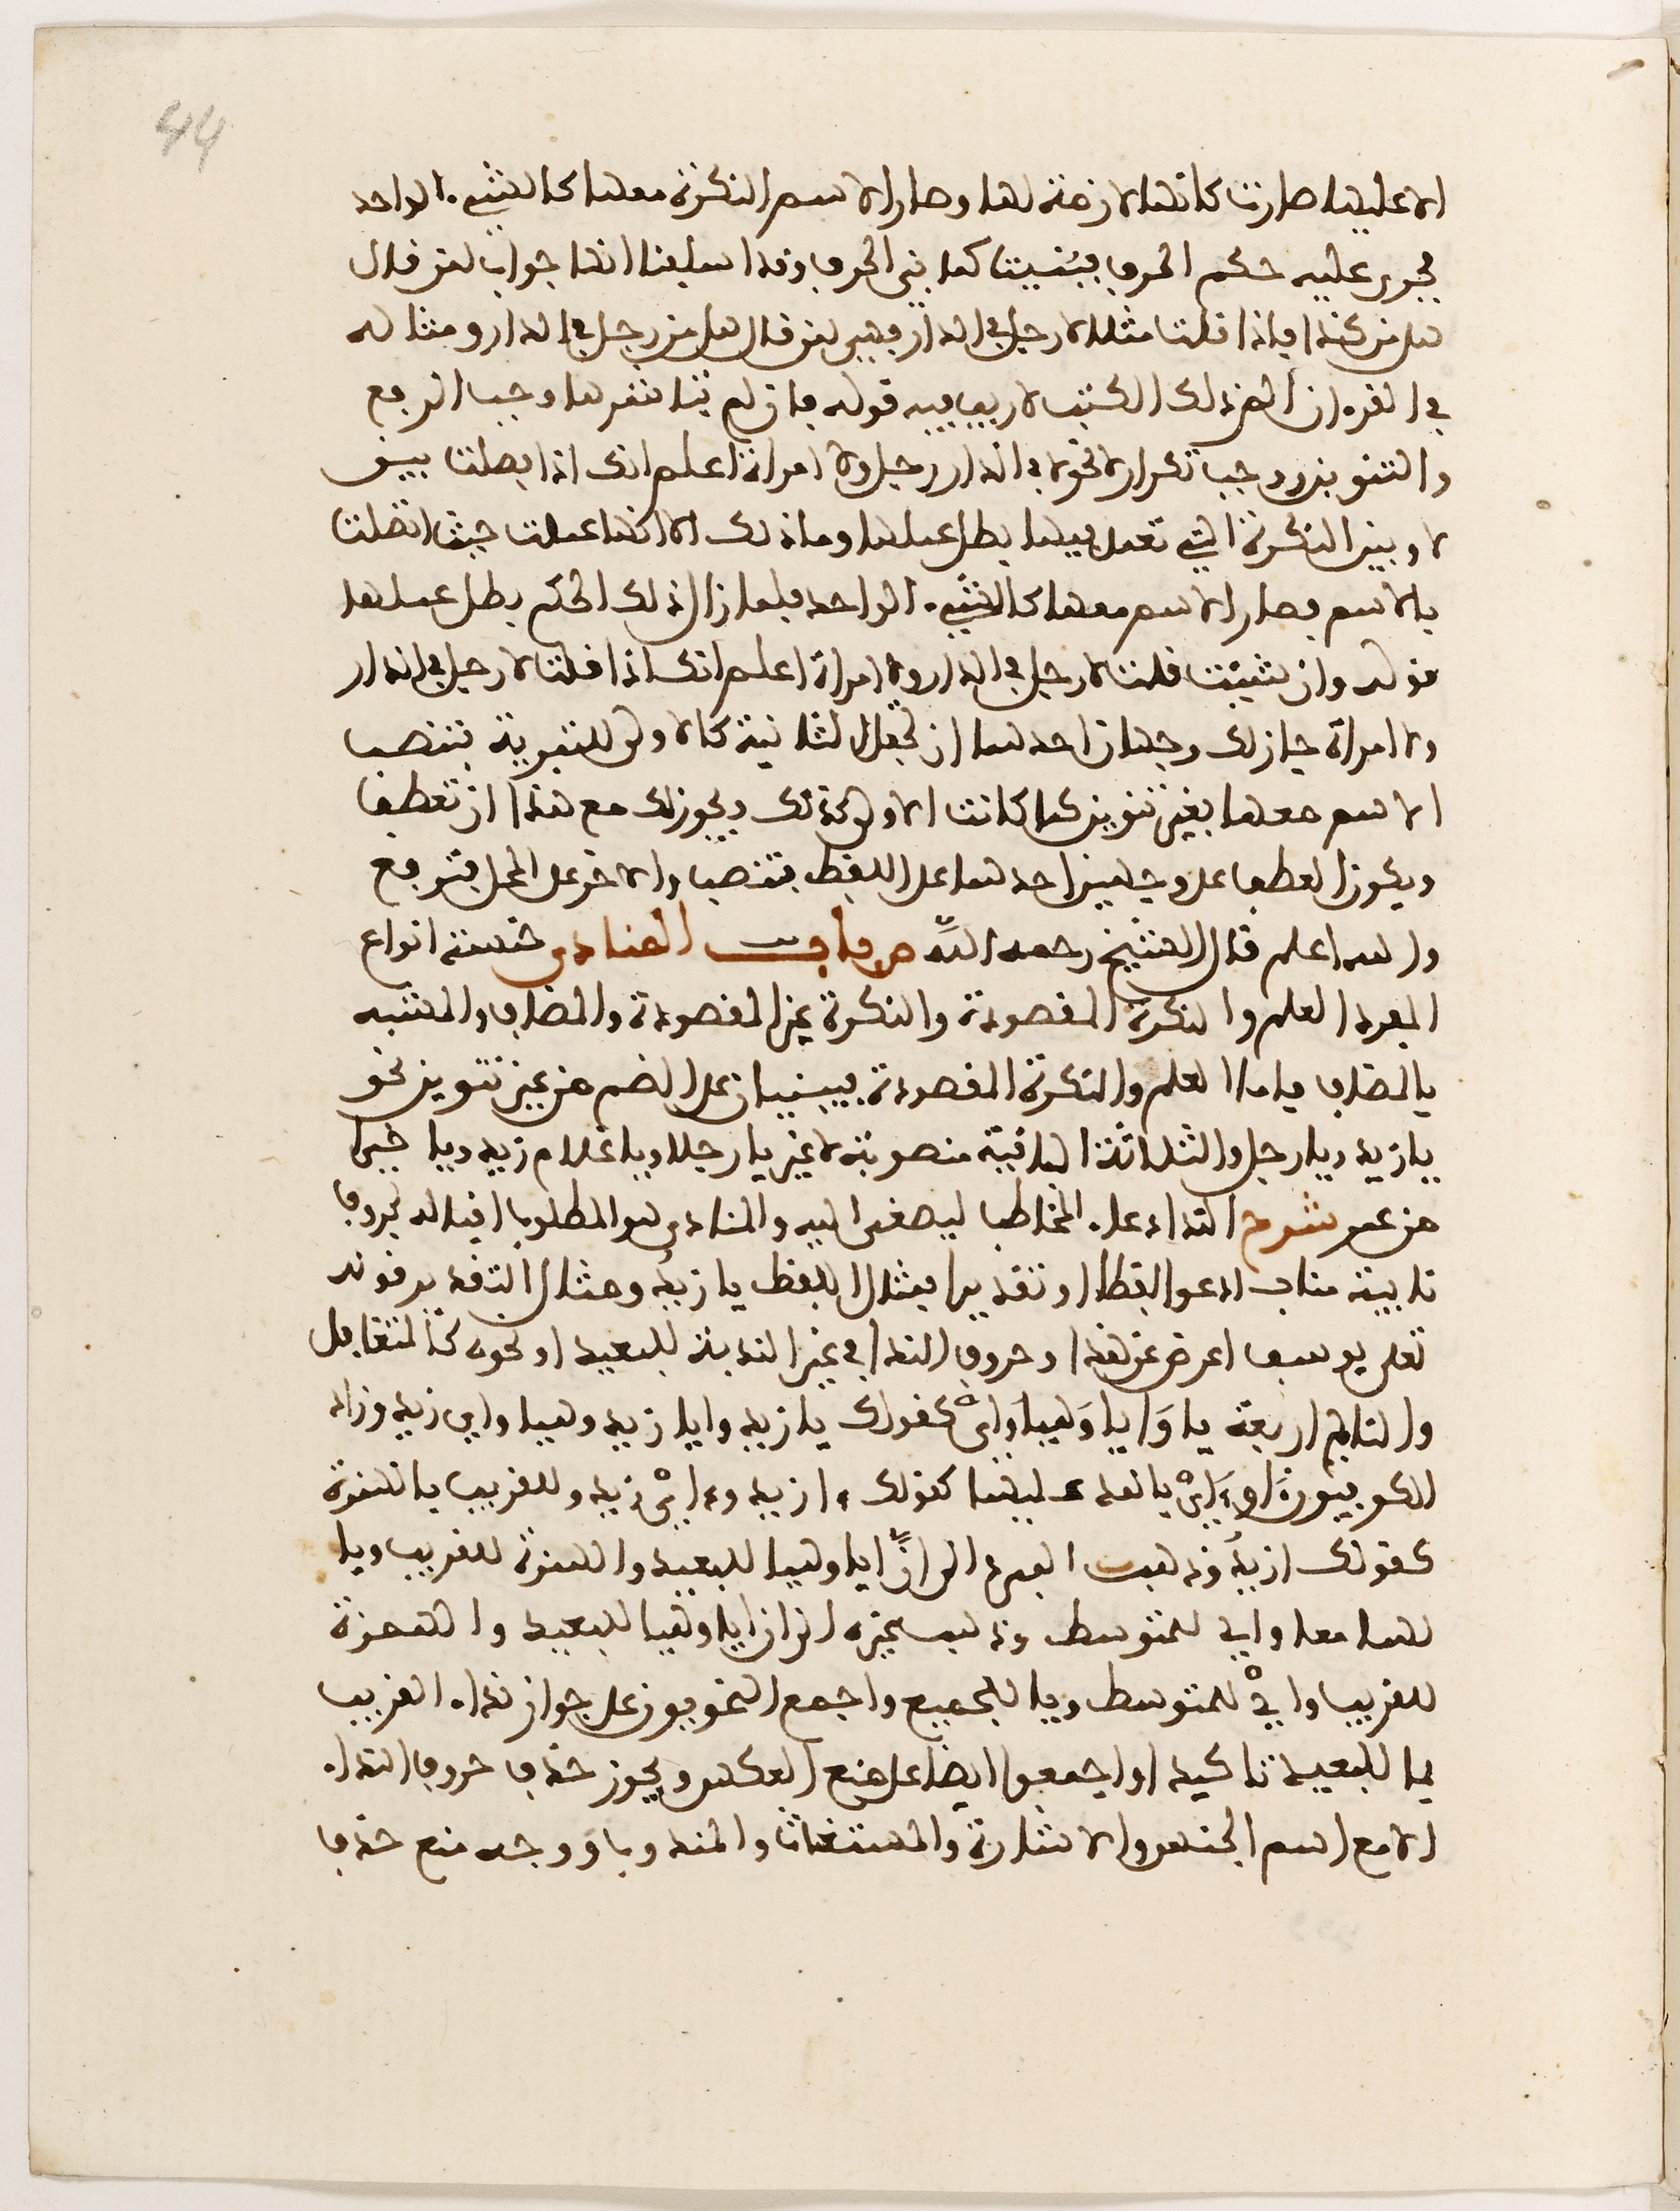 44
الا عليها صارت كانها لازمة لها وصار الاسم النكرة معها كالشيء الواحد
فجرى عليه حكم الحرف فبنيت كما بني الحرف وقد اسلفنا انها جواب لمن قال
هل من كذا فاذا قلت مثلا لا رجل في الدار فهي لمن قال هل من رجل في الدار ومثاله
في القرءان الم ذلك الكتب لا ريب فيه قوله فان لم تباشرها وجب الرفع
والتنوين ووجب تكرار لا نحو لا في الدار رجل ولا امراة اعلم انك اذا فصلت بين
لا وبين النكرة التي تعمل فيها بطل عملها وما ذلك الا انها عملت حيث اتصلت
بالاسم فصار الاسم معها كالشيء الواحد فلما زال ذلك الحكم بطل عملها
قوله وان شئت قلت لا رجل في الدار ولا امراة اعلم انك اذا قلت لا رجل في الدار
ولا امراة جاز لك وجهان احدهما ان تجعل الثانية كالاولى للتبرية فتنصب
الاسم معها بغير تنوين كما كانت الاولى كذلك ويجوز لك مع هذا ان تعطف
ويكون العطف على وجهين احدهما على اللفظ فتنصب والاخر على المحل فترفع
والله اعلم قال الشيخ رحمه الله ص باب المنادى خمسة انواع
المفرد العلم والنكرة المقصودة والنكرة غير المقصودة والمضاف والمشبه
بالمضاف فاما العلم والنكرة المقصودة فيبنيان على الضم من غير تنوين نحو
يا زيد ويا رجل والثلاثة الباقية منصوبة لا غير يا رجلا ويا غلام زيد ويا خيرا
من عمر شرح النداء دعاء المخاطب ليصغى اليه والمنادى هو المطلوب اقباله بحروف
نايبة مناب ادعو لفظا او تقديرا فمثال اللفظ يا زيد ومثال التقدير قوله
تعلى يوسف اعرض عن هذا وحروف النداء في غير الندبة للبعيد او نحوه كالمتغافل
والنايم اربعة يا وَايا وَهيا وَاىْ كقولك يا زيد وايا زيد وهيا واي زيد وزاد
الكوفيون ءَا وءَاىْ بالمد عليها كقولك ءا زيد وءاىْ زيد وللقريب بالهمزة
كقولك ازيدُ وذهب المبرد الى انّ ايا وهيا للبعيد والهمزة للقريب ويا
لهما معا واي للمتوسط وذهب غيره الى ان ايا وهيا للبعيد والهمزة
للقريب وايْ للمتوسط ويا للجميع واجمع النحويون على جواز نداء القريب
بما للبعيد تاكيدا واجمعوا ايضا على منع العكس ويجوز حذف حروف النداء
الا مع اسم الجنس والاشارة والمستغاث والمندوب ووجه منع حذف